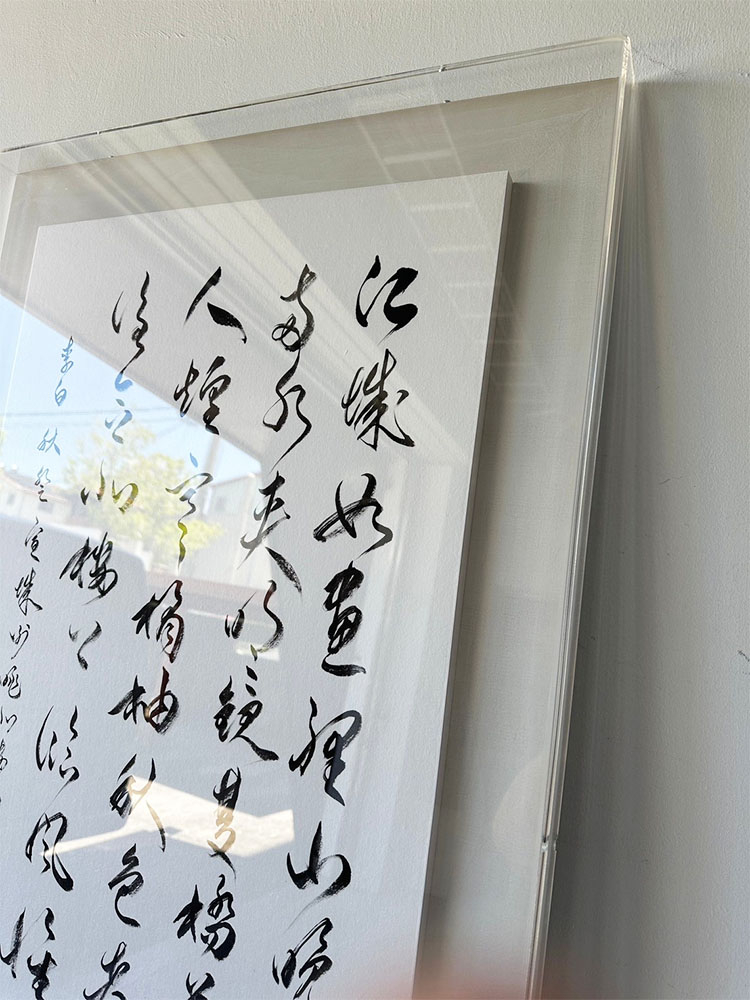 江城如畫裡山曉
兩水夾明鏡雙橋
人煙寒橘柚秋色
誰念北樓上臨風懷
李白秋登宣城謝朓北樓